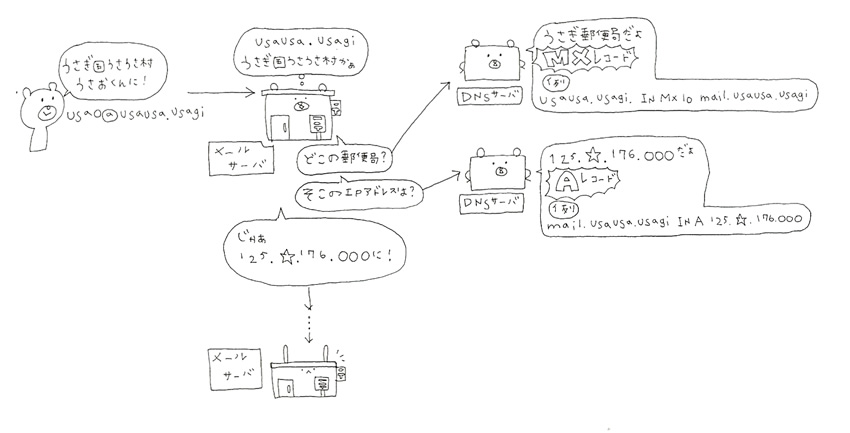 うさぎ国うさうさ村
うさおくんに!
usao@usausa.usagi
usausa.usagi
うさぎ国うさうさ村かぁ
メール
サーバ
どこの郵便局?
そこのIPアドレスは?
DNSサーバ
うさぎ郵便局だよ
MXレコード
例
usausa.usagi. IN MX 10 mail.usausa.usagi
DNSサーバ
125.☆.176.000だよ
Aレコード
例
mail.usausa.usagi IN A 125.☆.176.000
じゃあ
125.☆.176.000に!
メール
サーバ